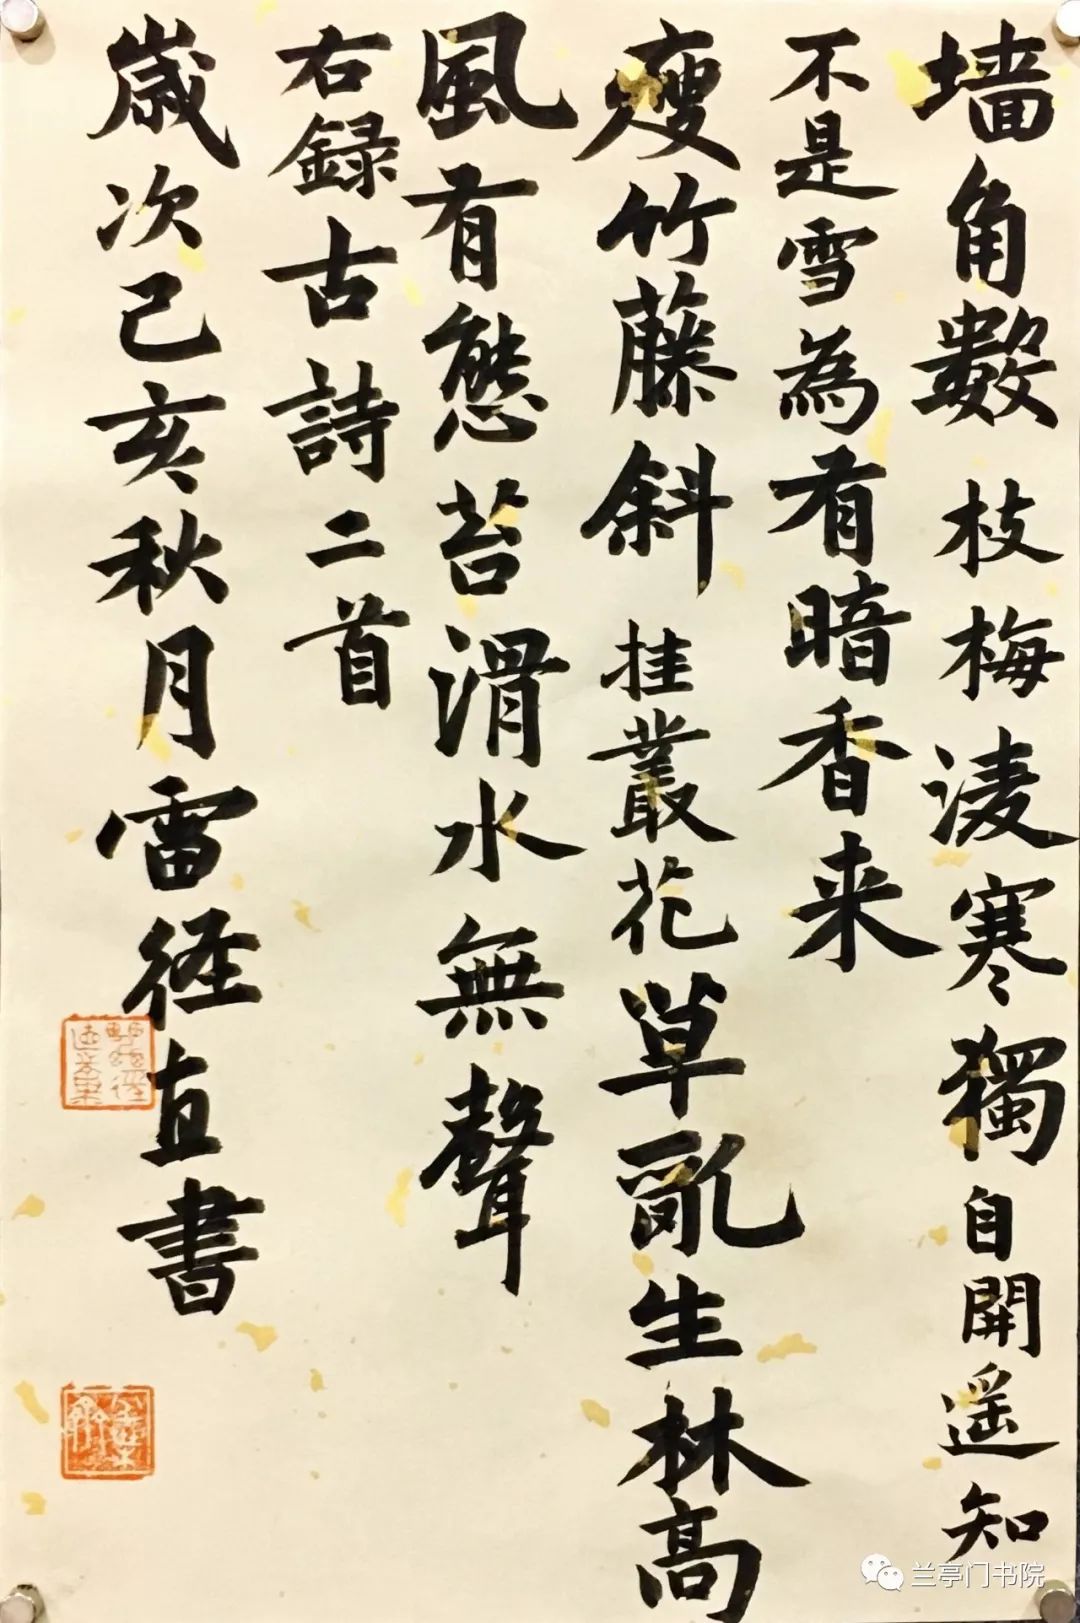 墙角數枝梅淩寒獨自開遥知
不是雪為有暗香来
瘦竹藤斜挂叢花草亂生林高
風有態苔滑水無聲
右録古詩二首
歲次己亥秋月雷径直書
兰亭门书院